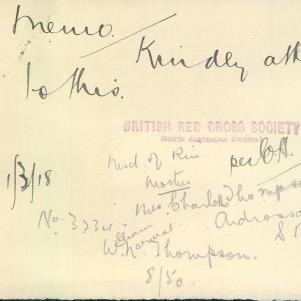 Memo.
Kindly att
to this.
BRITISH RED CROSS SOCIETY
(SOUTH AUSTRALIAN DIVISION)
1/3/18
next of Kin
per
Mother
Mrs. Charlotte Thompson
Ardrossan
S
No. 3334
William
W. Norval Thompson.
8/50.